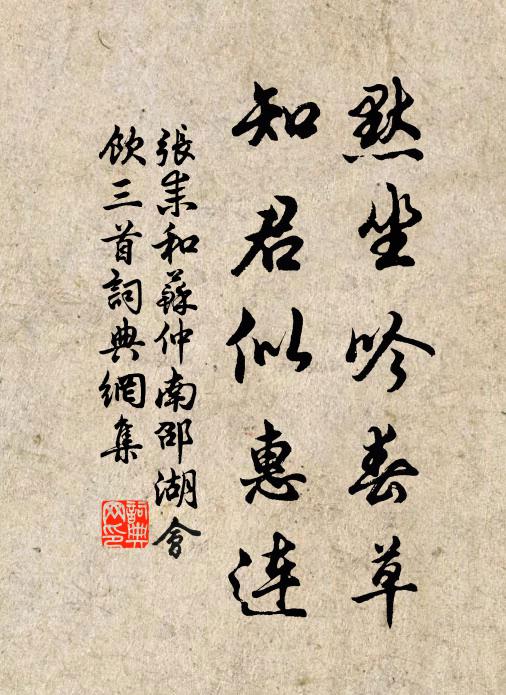 默坐吟春草
知君似惠連
張耒和蘇仲南邵湖會
飲三首詞典網集
詞典
网印